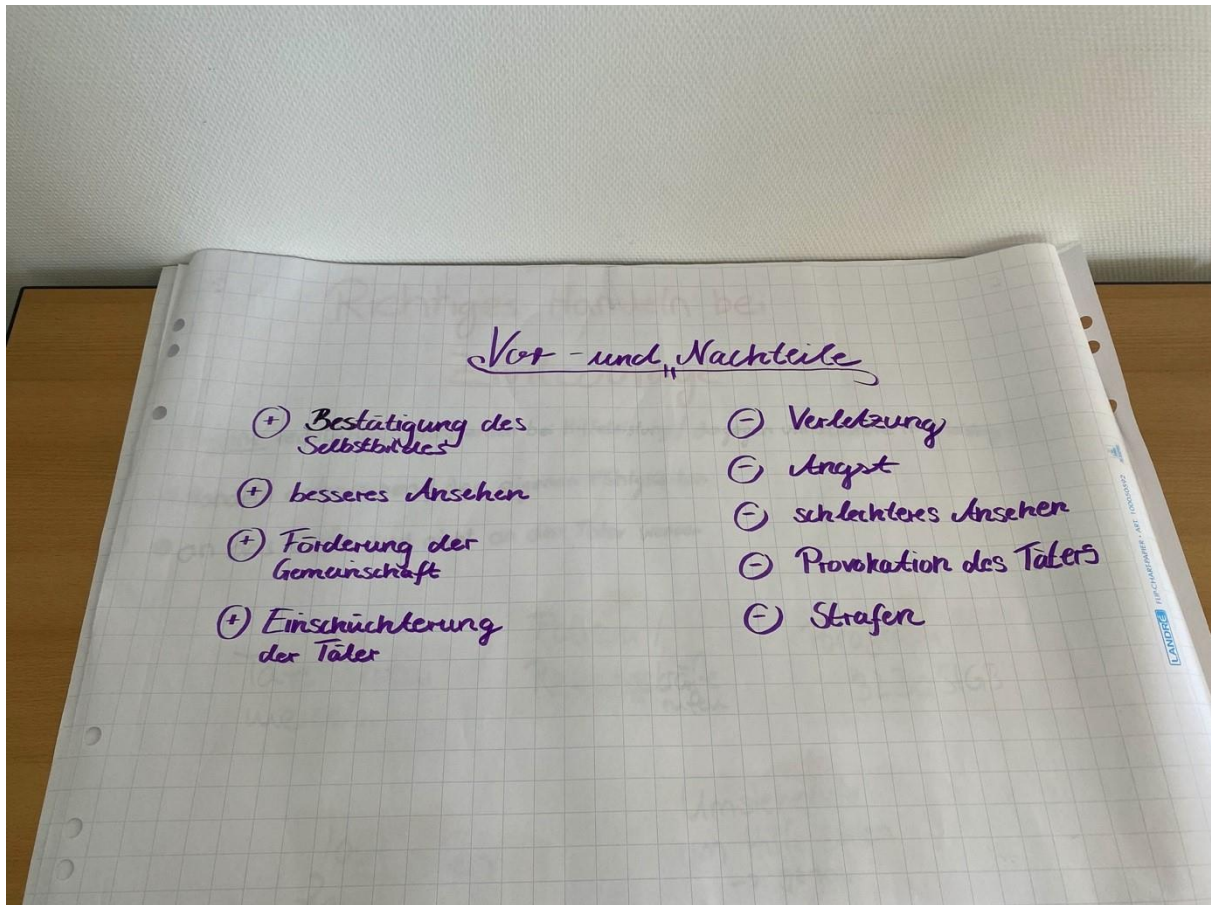 Vor - und Nachteile
(+) Bestätigung des
Selbstbildes
(+) besseres Ansehen
(+) Förderung der
Gemeinschaft
(+) Einschüchterung
der Täter
(-) Verletzung
(-) Angst
(-) schlechteres Ansehen
(-) Provokation des Täters
(-) Strafen
LANDRÉ FLIP-CHARTPAPIER • ART. 100050592
Richtiges Handeln bei